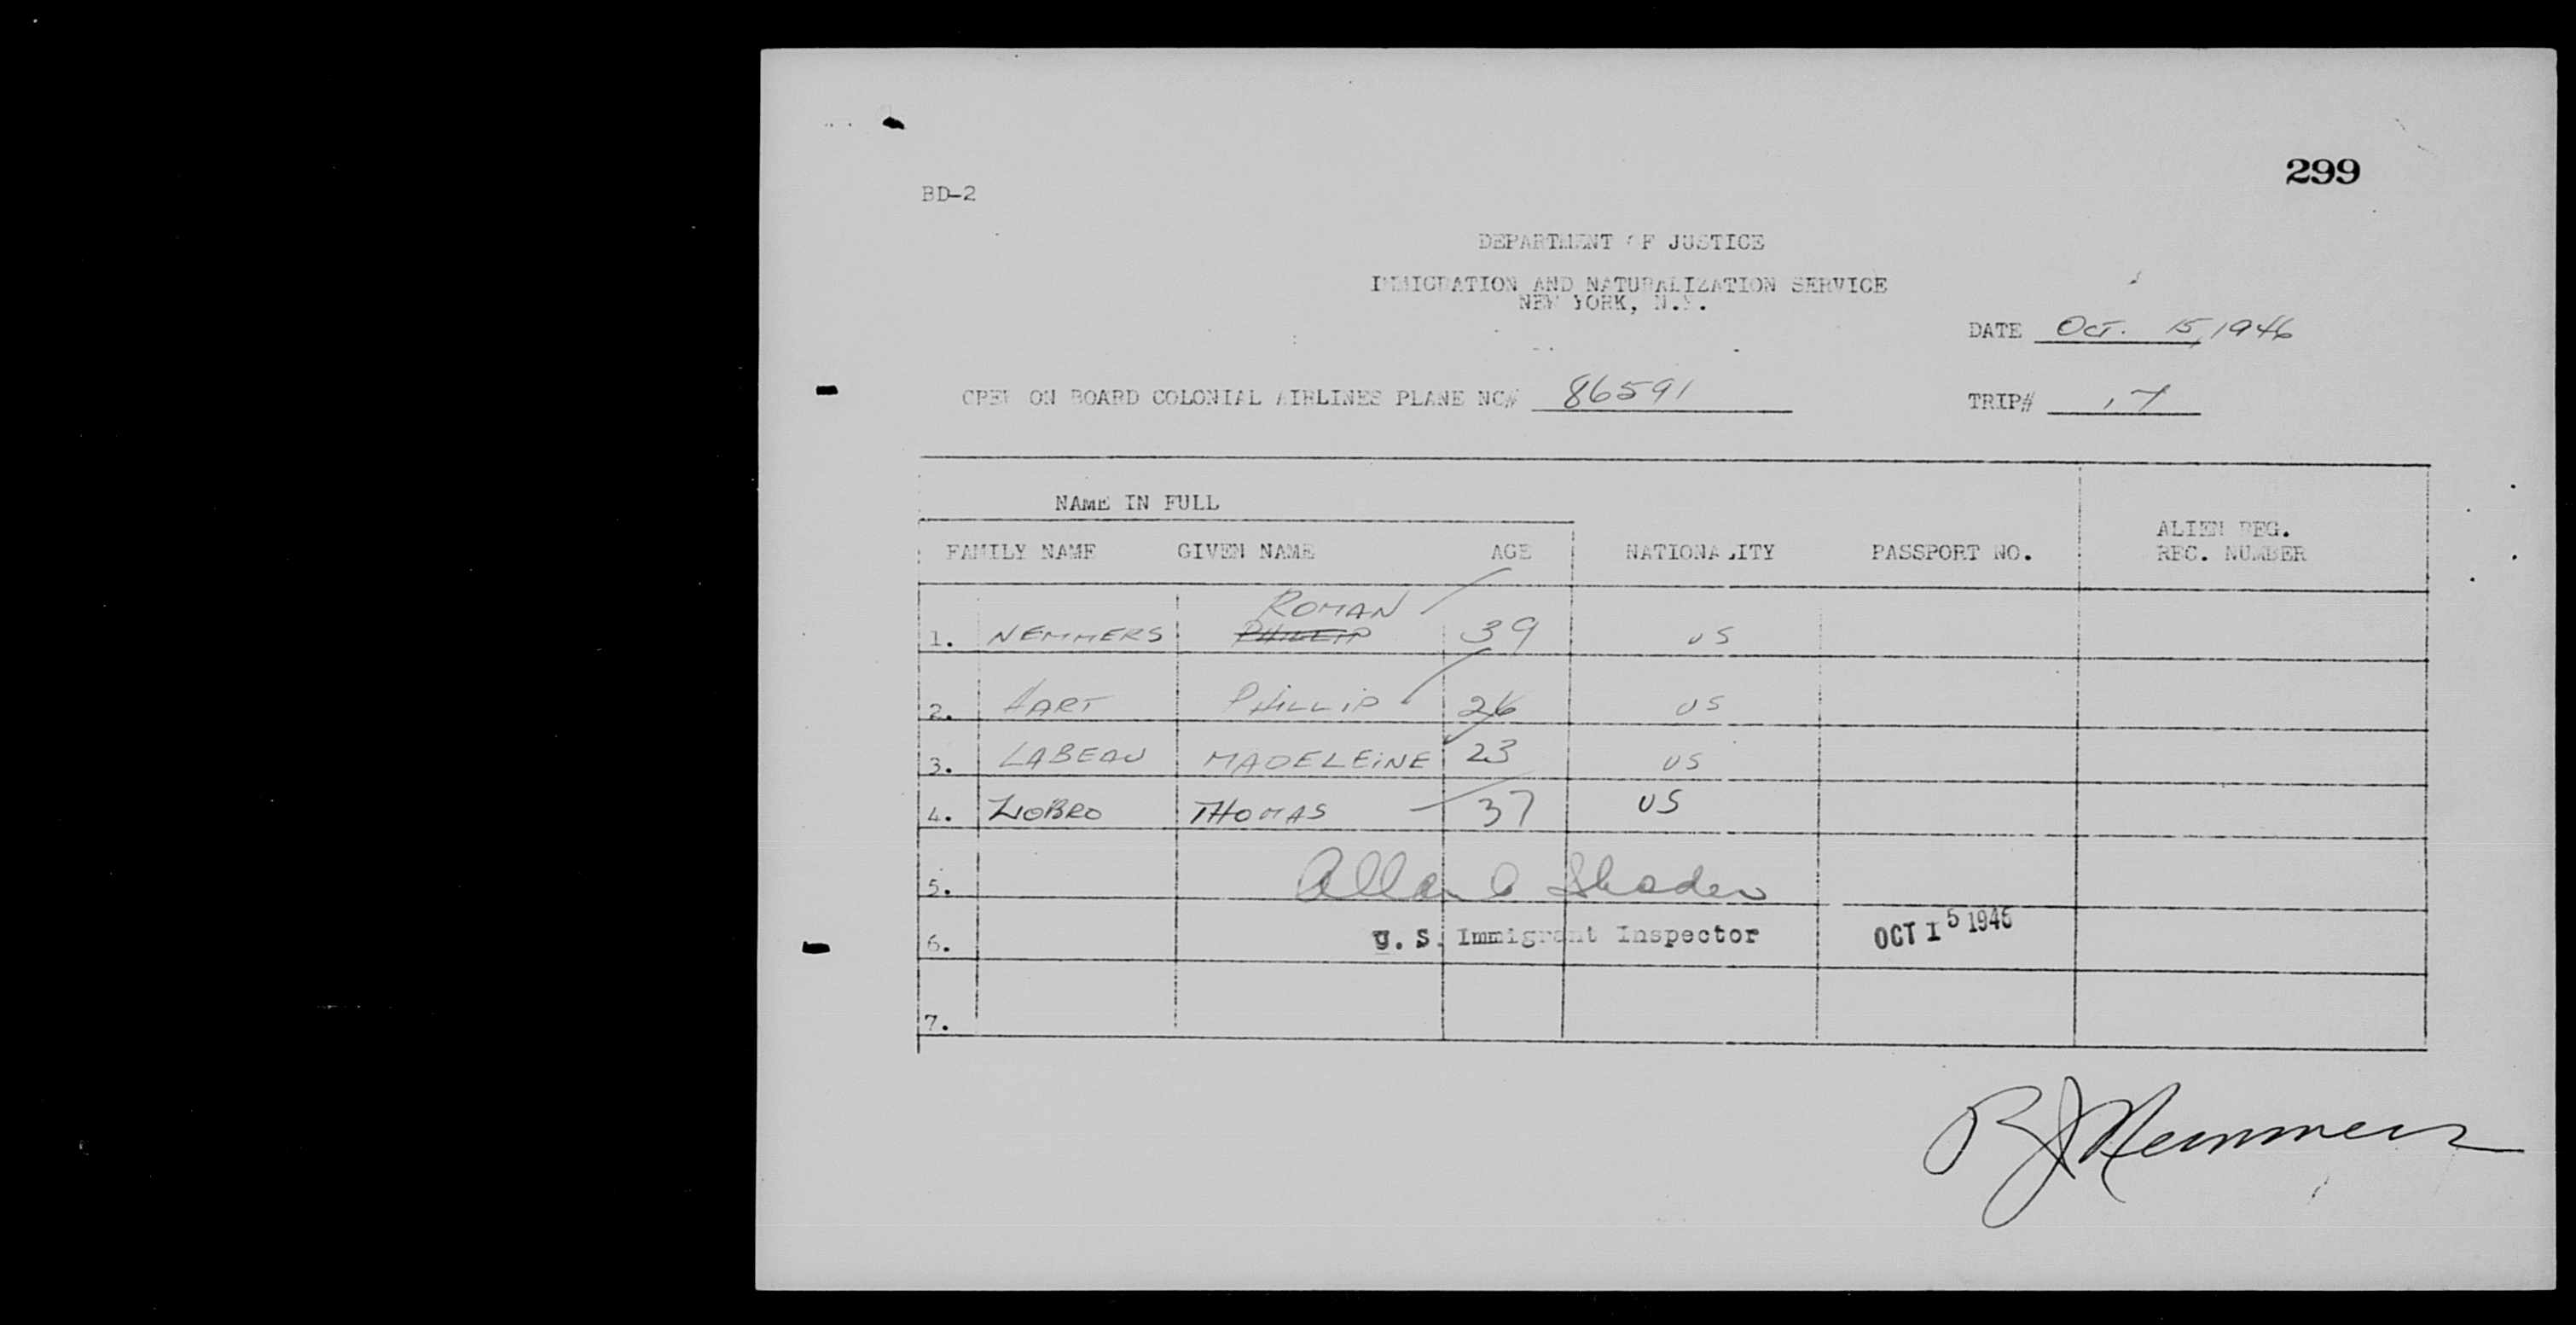 299
BD-2
DEPARTMENT OF JUSTICE
IMMIGRATION AND NATURALIZATION SERVICE
NEW YORK, N.Y.
DATE Oct. 15, 1946
CREW ON BOARD COLONIAL AIRLINES PLANE NC# 86591 TRIP# 17
NAME IN FULL
ALIEN REG.
FAMILY NAME GIVEN NAME AGE NATIONALITY PASSPORT NO. REC. NUMBER
ROMAN
1. NEMMERS PHILLIP 39 US
2. HART PHILLIP 26 US
3. LABEAU MADELEINE 23 US
4. THOMAS 37 US
5. Allan
6. U. S. Immigrant Inspector OCT 15 1946
7.
R J Nemmers